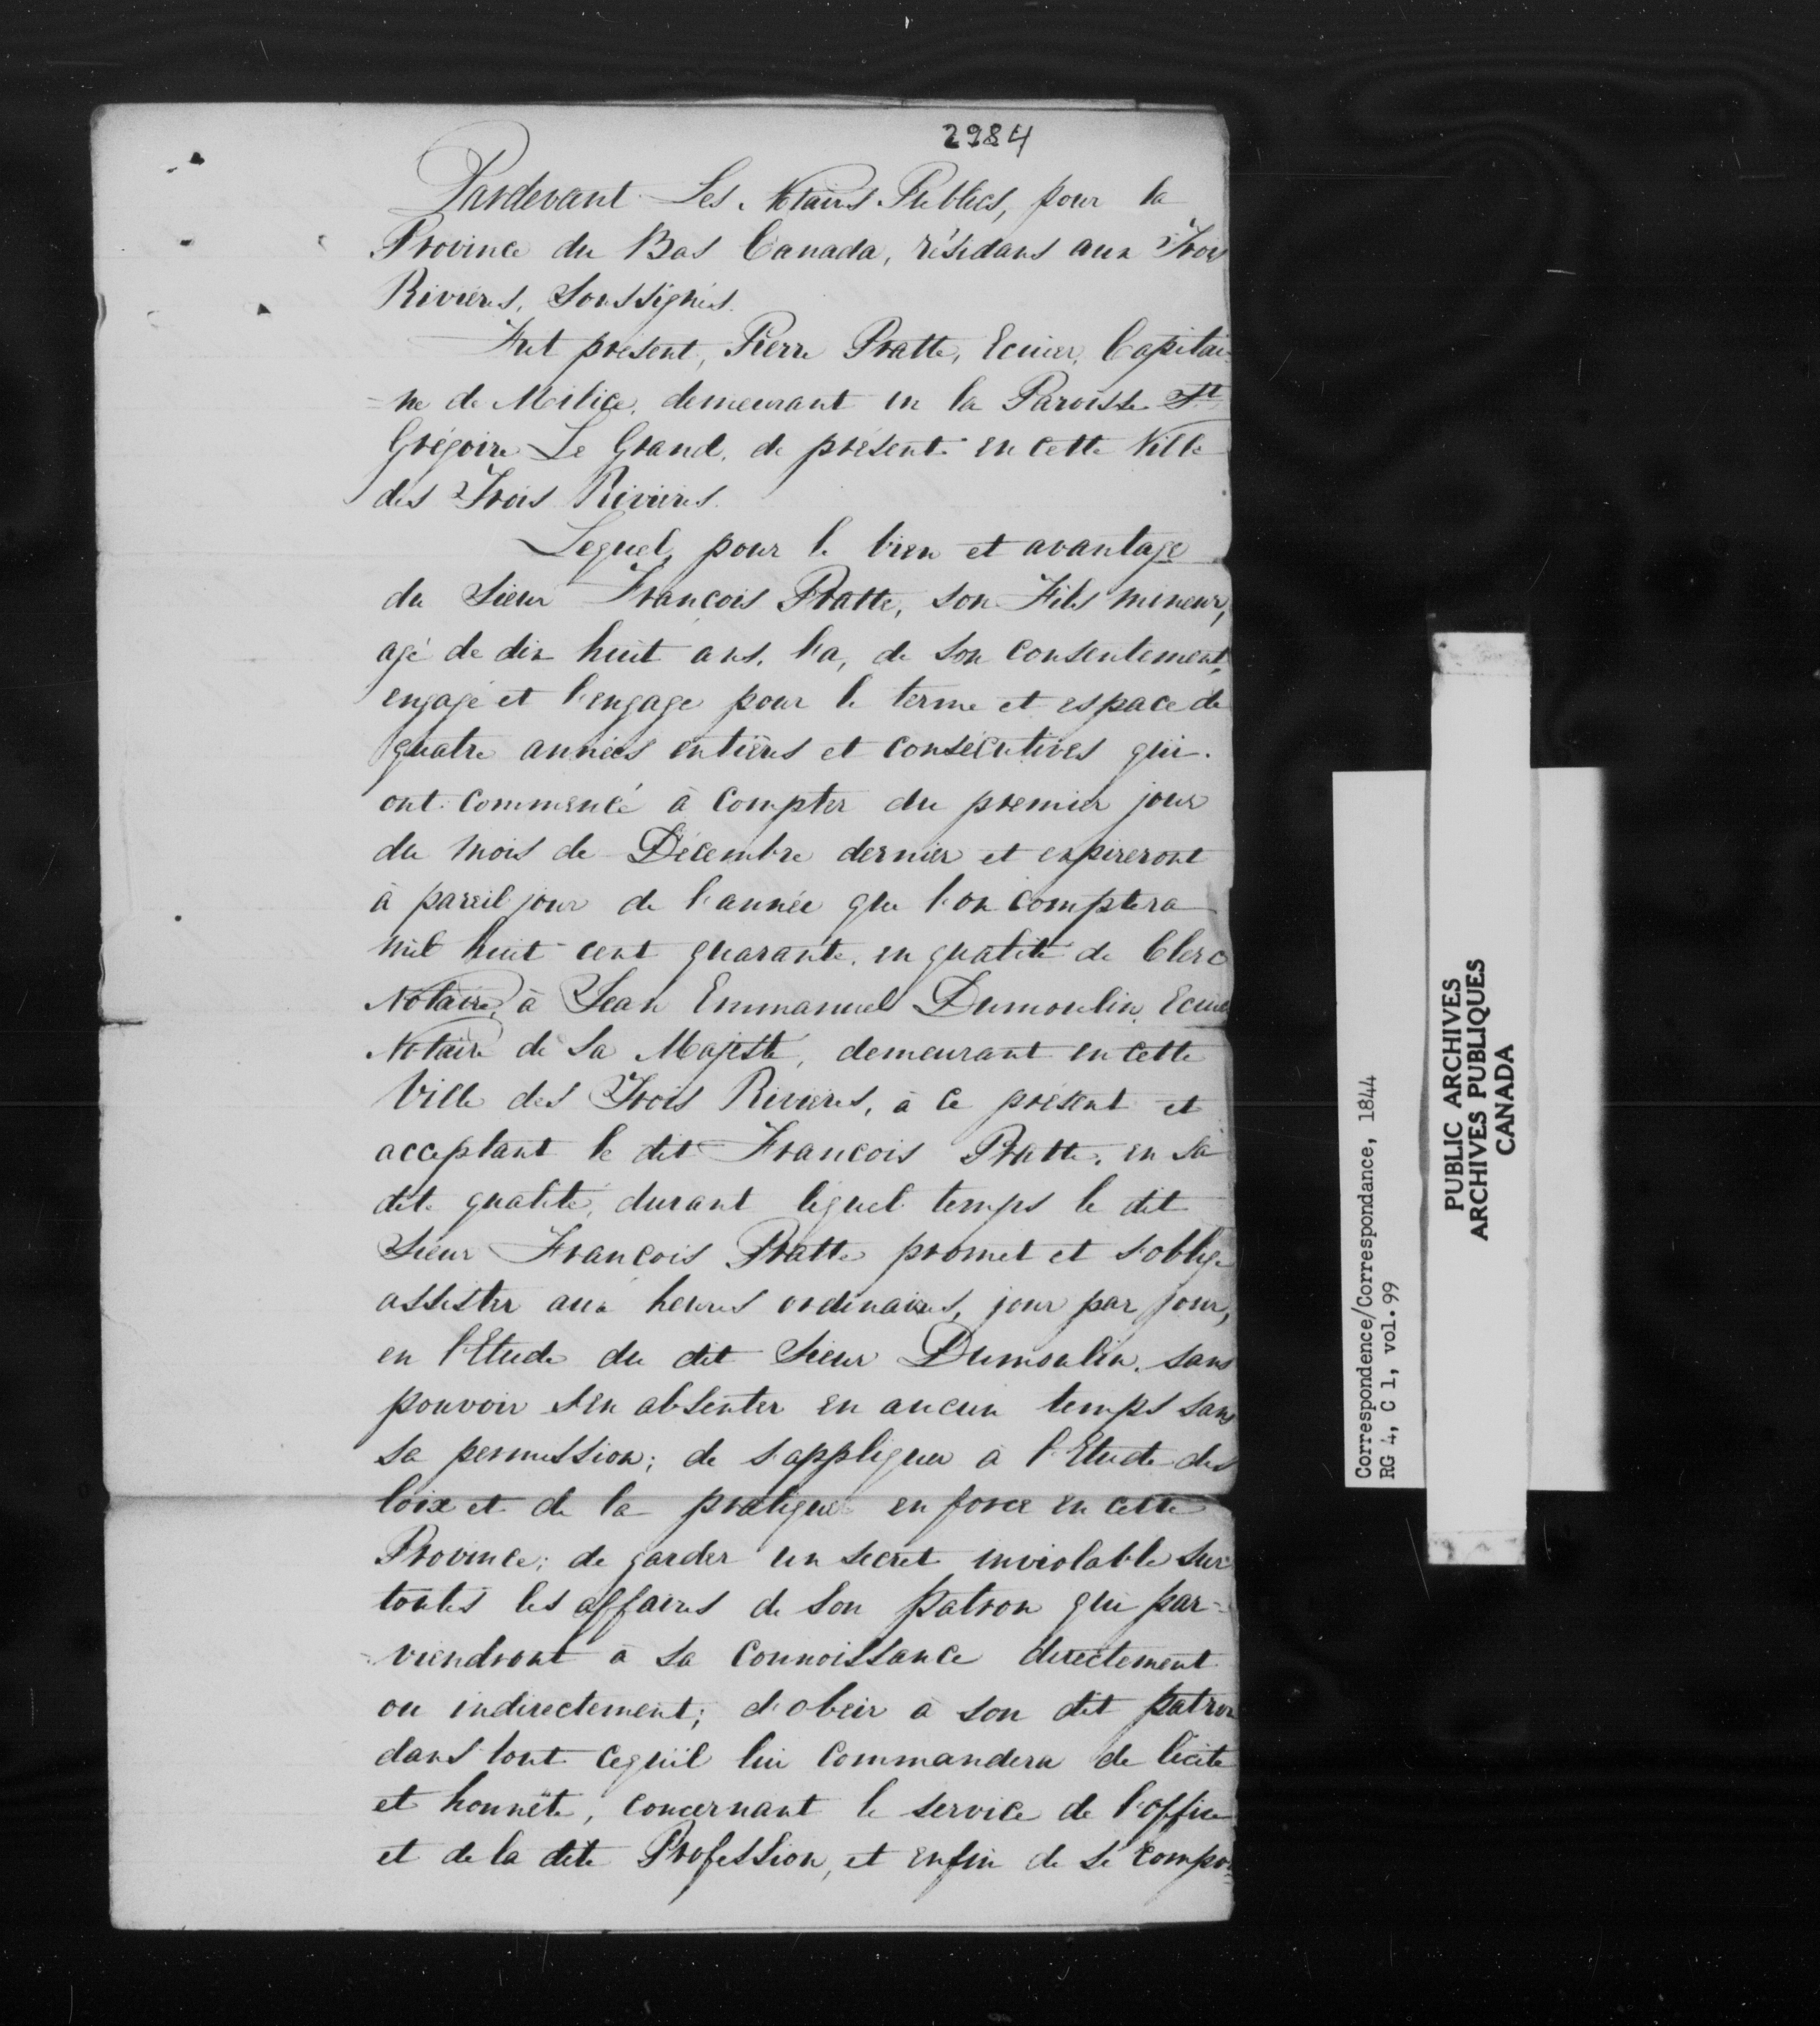 2984
Pardevant Les Notaires Publics, pour la
Province du Bas Canada, résidans aux Trois
Rivieres, Soussignés.
Fut présent, Pierre Pratte, Ecuier, Capitai-
=ne de Milice, demeurant en la Paroisse St
Grégoire Le Grand, de présent en cette Ville
des Trois Rivieres.
Lequel, pour le bien et avantage
du Sieur François Pratte, son Fils mineur,
agé de dix huit ans, l'a, de son consentement,
engagé et l'engage pour le terme et espace de
quatre années entières et consécutives qui
ont commencé à compter du premier jour
du mois de Décembre dernier et expireront
à pareil jour de l'année que l'on comptera
mil huit cent quarante, en qualité de Clerc
Notaire, à Jean Emmanuel Dumoulin, Ecuier
Notaire de Sa Majesté, demeurant en cette
Ville des Trois Rivieres, à ce présent et
acceptant le dit François Pratte, en sa
dite qualité, durant lequel temps le dit
Sieur François Pratte promet et s'oblige
assister aux heures ordinaires, jour par jour,
en l'Etude du dit Sieur Dumoulin, sans
pouvoir s'en absenter en aucun temps sans
sa permission; de s'appliquer à l'Etude des
loix et de la pratique en force en cette
Province; de garder un secret inviolable sur
toutes les affaires de son patron qui par=
=viendront à sa connoissance directement
ou indirectement; d'obeir à son dit patron
dans tout cequ'il lui commandera de licite
et honnête, concernant le service de l'office
et de la dite Profession, et enfin de se compor=
Correspondence/Correspondance, 1844
RG 4, C 1, vol. 99
PUBLIC ARCHIVES
ARCHIVES PUBLIQUES
CANADA